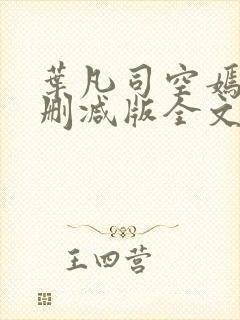 葉凡司空嫣
刪減版全文
王四营